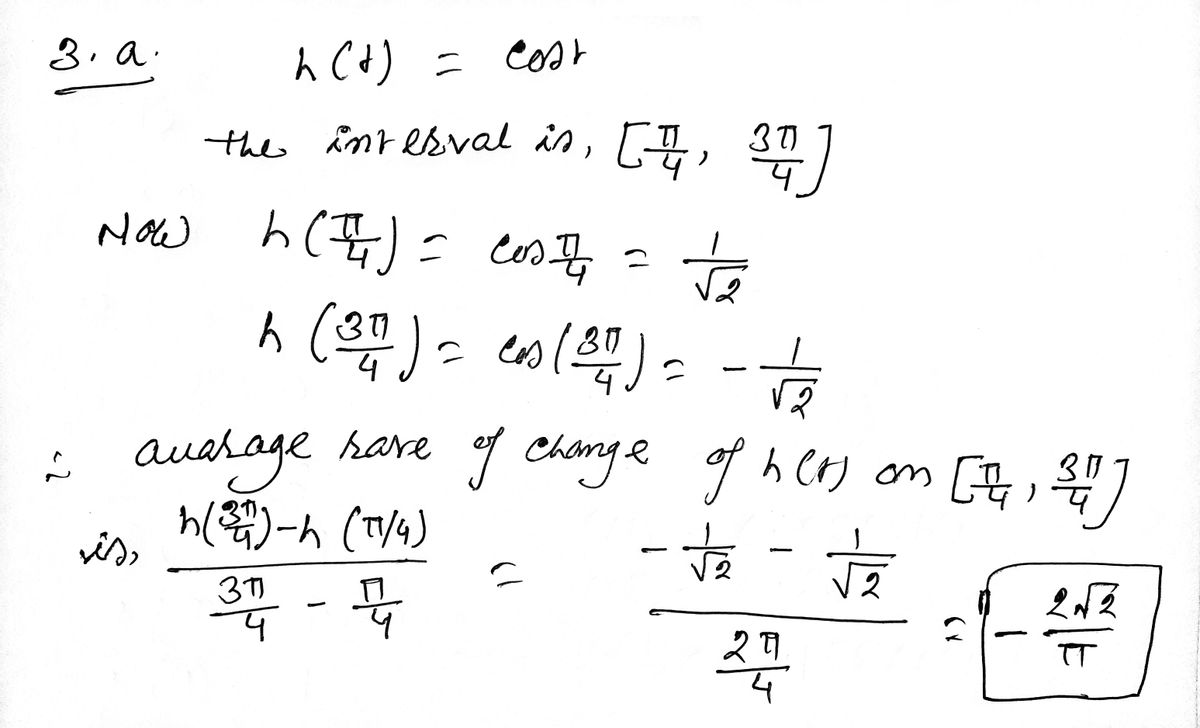 3. a. h(t) = cost
the interval is, [π/4, 3π/4]
Now h(π/4) = cos π/4 = 1/√2
h(3π/4) = cos(3π/4) = - 1/√2
∴ avarage rate of change of h(t) on [π/4, 3π/4]
is, (h(3π/4)-h(π/4))/(3π/4 - π/4) = (- 1/√2 - 1/√2)/(2π/4) = - 2√2/π